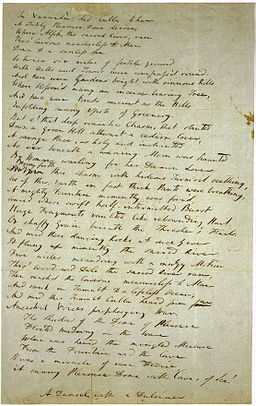 In Xannadù did Cubla Khan
A stately Pleasure-Dome decree;
Where Alph, the sacred River, ran
Thro' Caverns measureless to Man
Down to a sunless Sea.
So twice six miles of fertile ground
With Walls and Towers were compass'd round:
And here were Gardens bright with sinuous Rills
Where blossom'd many an incense-bearing Tree,
And here were Forests ancient as the Hills
Enfolding sunny Spots of Greenery.
But o! that deep romantic Chasm, that slanted
Down a green Hill athwart a cedarn Cover,
A savage Place, as holy and inchanted
As e'er beneath a waning Moon was haunted
By Woman wailing for her Daemon Lover:
From forth this Chasm with hideous Turmoil seething,
As if this Earth in fast thick Pants were breathing,
A mighty Fountain momently was forc'd,
Amid whose swift half-intermitted Burst
Huge Fragments vaulted like rebounding Hail,
Or chaffy Grain beneath the Thresher's Flail:
And mid these dancing Rocks at once & ever
It flung up momently the sacred River.
Five miles meandring with a mazy Motion
Thro' Wood and Dale the sacred River ran,
Then reach'd the Caverns measureless to Man
And sank in Tumult to a lifeless Ocean;
And mid this Tumult Cubla heard from far
Ancestral Voices prophesying War.
The Shadow of the Dome of Pleasure
Floated midway on the Wave
Where was heard the mingled Measure
From the Fountain and the Cave.
It was a miracle of rare Device,
A sunny Pleasure-Dome with Caves of Ice!
A Damsel with a Dulcimer